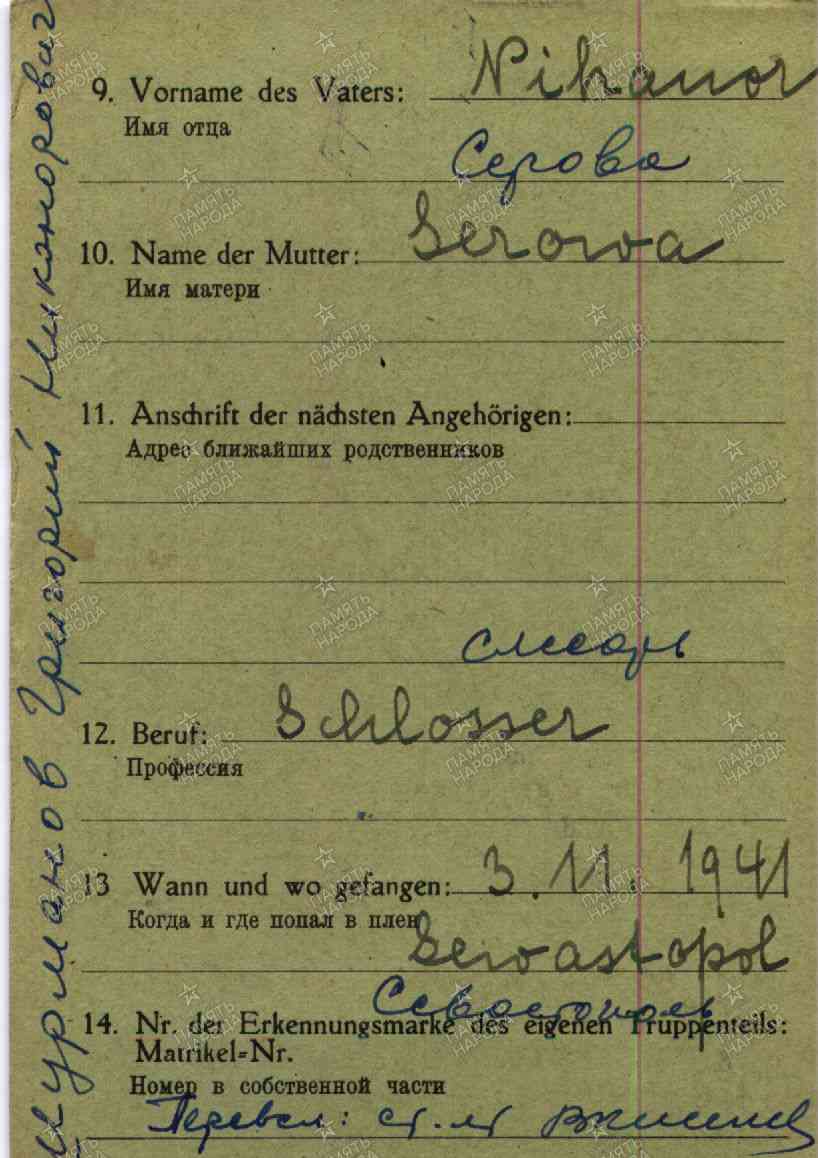 9. Vorname des Vaters: Nikanor
Имя отца
Серова
10. Name der Mutter: Serowa
Имя матери
11. Anschrift der nächsten Angehörigen:
Адрес ближайших родственников
слесарь
12. Beruf: Schlosser
Профессия
13 Wann und wo gefangen: 3. 11. 1941
Когда и где попал в плен
Sewastopol
Севастополь
14. Nr. der Erkennungsmarke des eigenen Truppenteils:
Matrikel=Nr.
Номер в собственной части
Перевел: ст. лт
Григорий Никонорович
ПАМЯТЬ НАРОДА